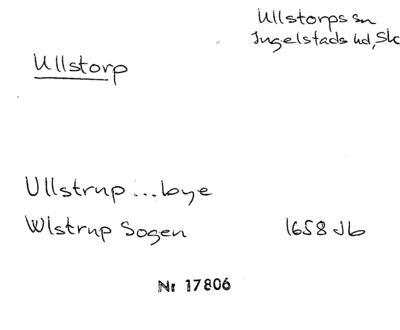 Ullstorps sn
Ingelstads hd, Sk
Ullstorp
Ullstrup ... bye
Wlstrup Sogen 1658 Jb
Nr 17806